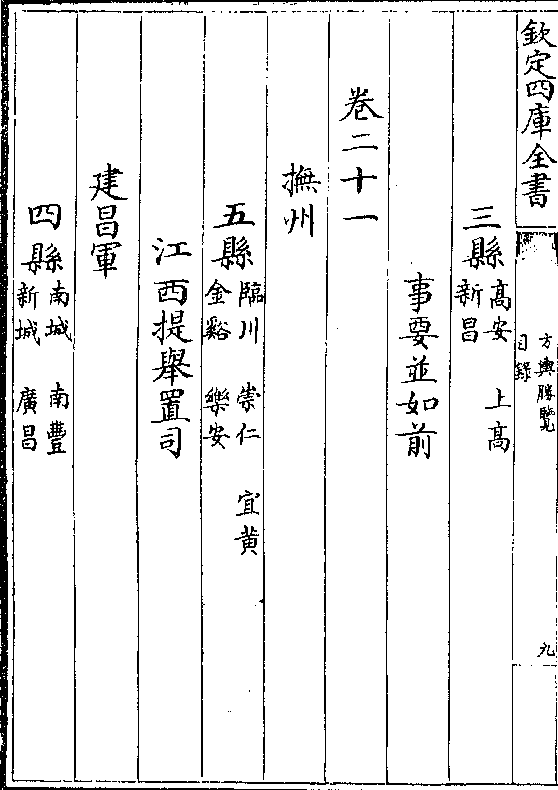 欽定四庫全書
方輿勝覽
目錄
九
三縣
高安 上高
新昌
事要並如前
卷二十一
撫州
五縣
臨川 崇仁 宜黄
金谿 樂安
江西提舉置司
建昌軍
四縣
南城 南豐
新城 廣昌